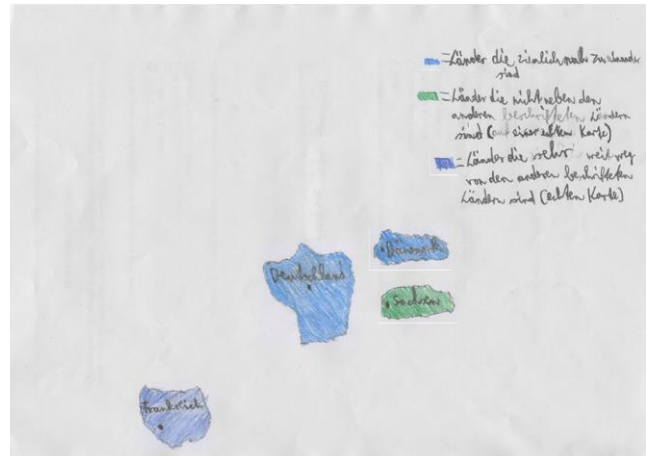 =Länder die ziemlich nah zueinander
sind
=Länder die nicht neben den
anderen beschrifteten Ländern
sind (auf einer echten Karte)
=Länder die sehr weit weg
von den anderen beschrifteten
Ländern sind (echten Karte)
Dänemark
Deutschland
Sachsen
Frankreich